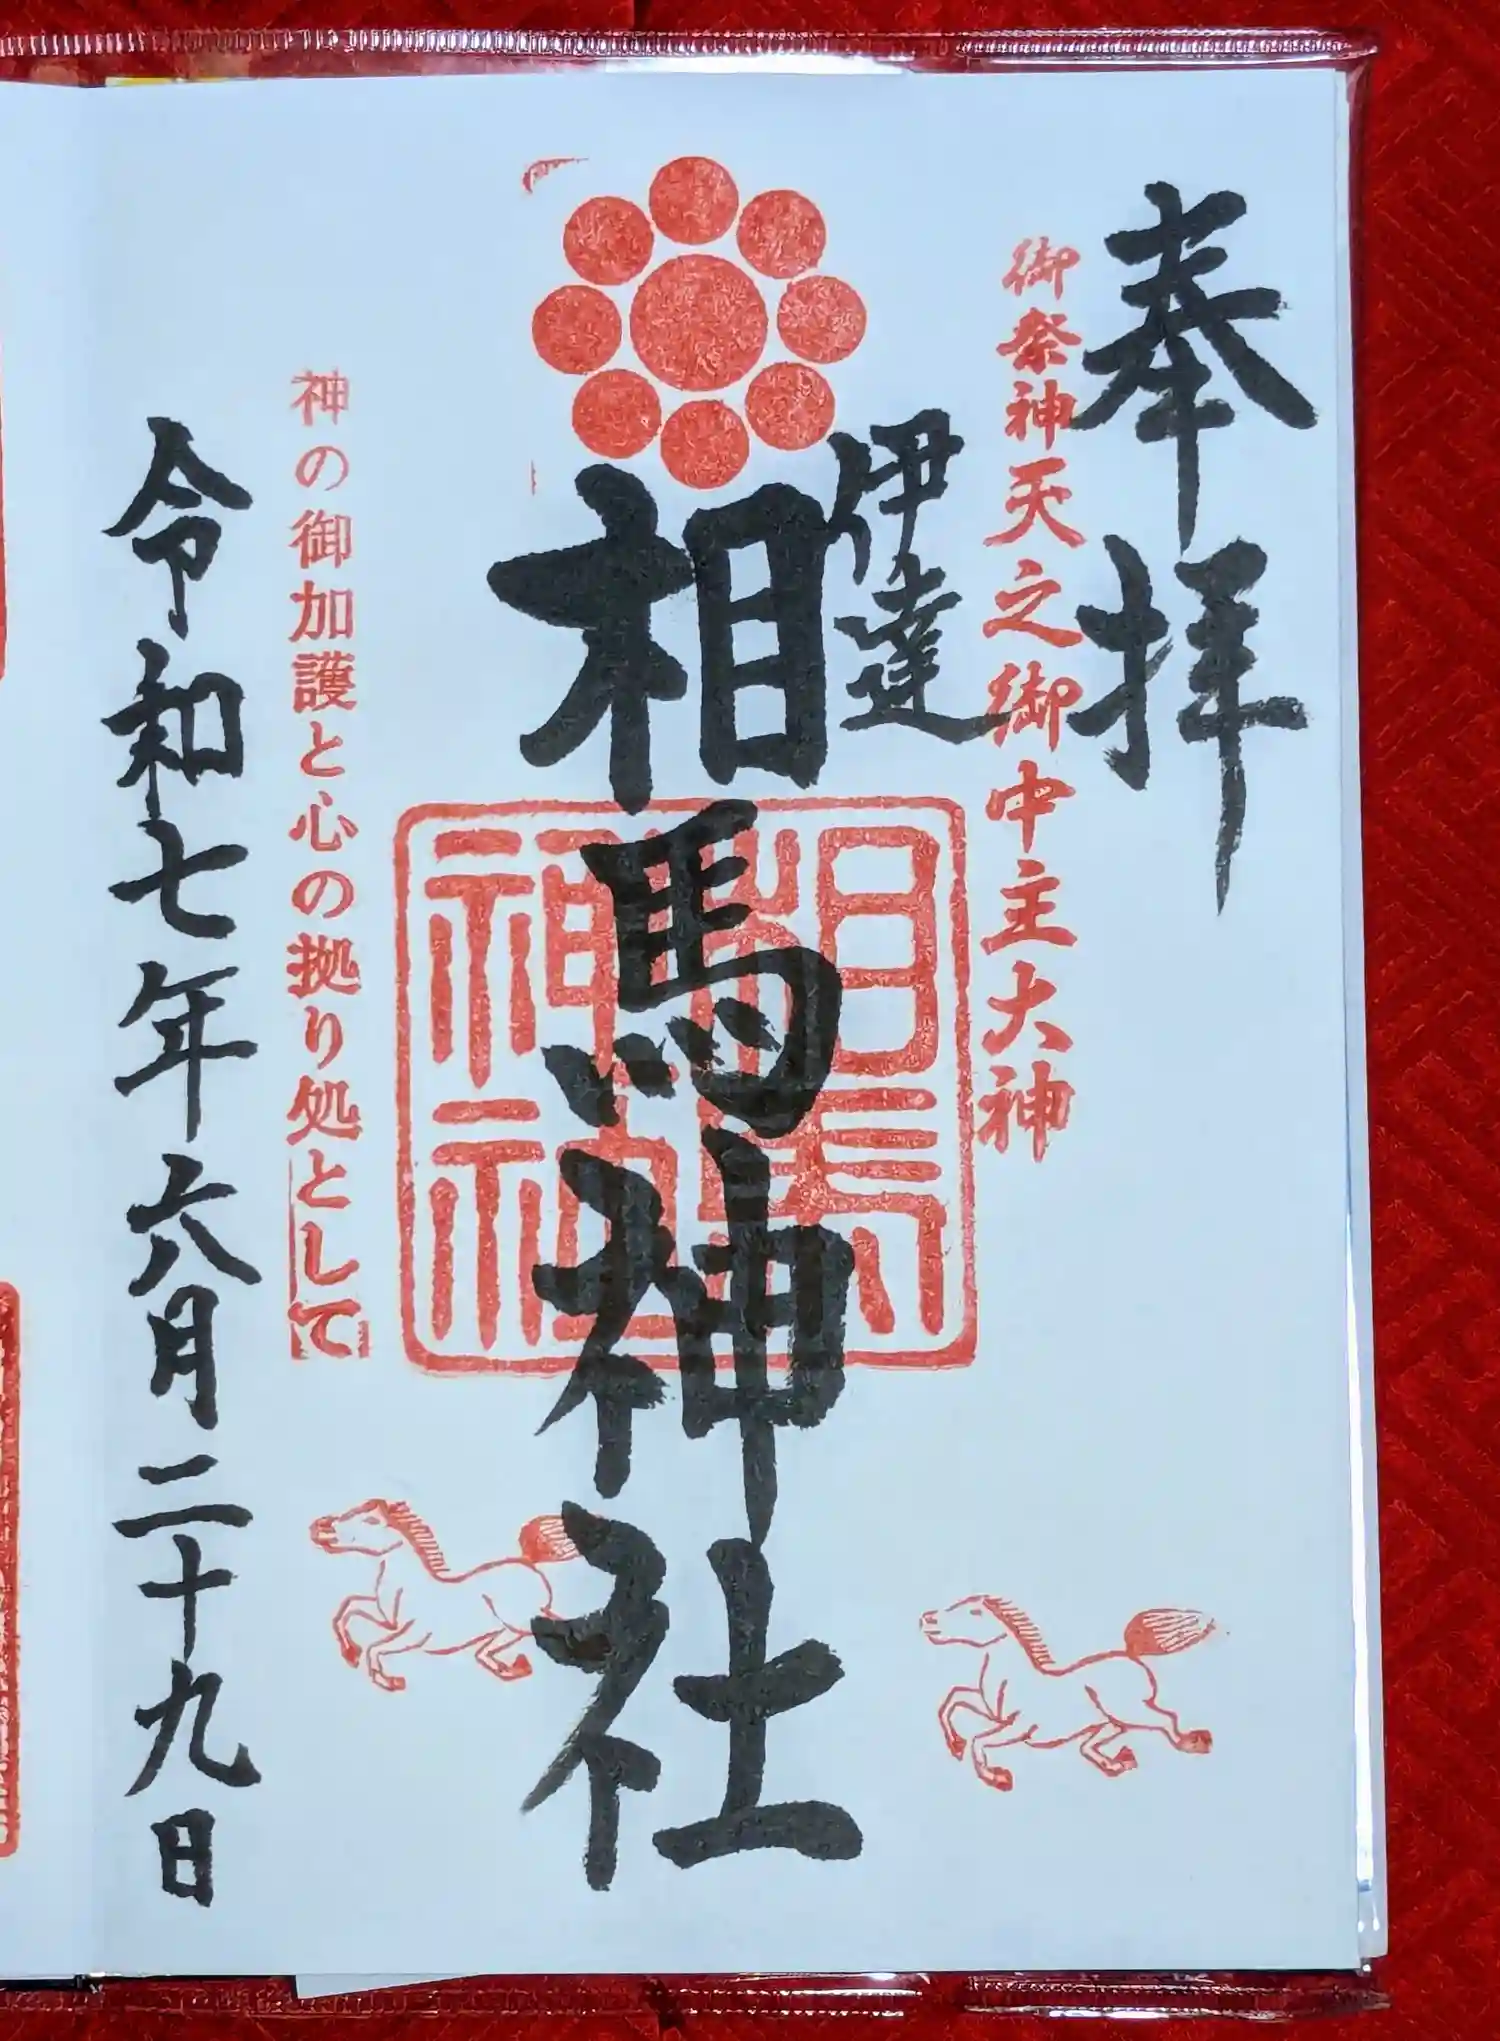 奉拝
御祭神天之御中主大神
伊達
相馬神社
相馬
神社
神の御加護と心の拠り処として
令和七年六月二十九日